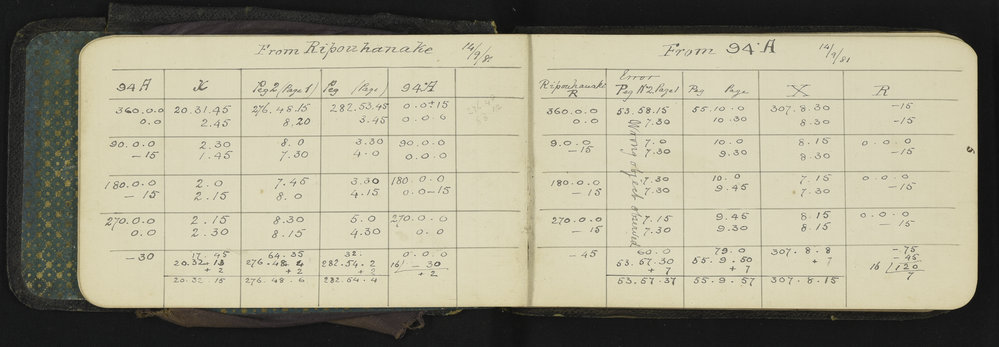 From Ripouhanake 14/9/81
94A X Peg 2 (Page 1) Peg (Page) 94A
360.0.0 20.31.45 276.48.15 282.53.45 0.0+15
0.0 2.45 8.20 3.45 0.0.0
90.0.0 2.30 8.0 3.30 90.0.0
-15 1.45 7.30 4.0 0.0.0
180.0.0 2.0 7.45 3.30 180.0.0
-15 2.15 8.0 4.15 0.0-15
270.0.0 2.15 8.30 5.0 270.0.0
0.0 2.30 8.15 4.30 0.0
-30 17.45 64.35 32. 0.0.0
20.32.13 276.48.4 282.54.2 16 -30
+2 +2 +2 +2
20.32.15 276.48.6 282.54.4
From 94A 14/9/81
Error
Ripouhanake R Peg No 2 Page 1 Peg Page X R
360.0.0 53.58.15 55.10.0 307.8.30 -15
0.0 7.30 10.30 8.30 -15
90.0.0 7.0 10.0 8.15 0.0.0
-15 7.30 9.30 8.30
180.0.0 7.30 10.0 7.15 0.0.0
-15 7.30 9.45 7.30
270.0.0 7.15 9.45 8.15 0.0.0
-15 7.30 9.30 8.15 -15
-45 60.0 79.0 307.8.8 -75
53.57.30 55.9.50 +7 -45
+7 +7 16 120
53.57.37 55.9.57 307.8.15 7
Wrong object observed
5